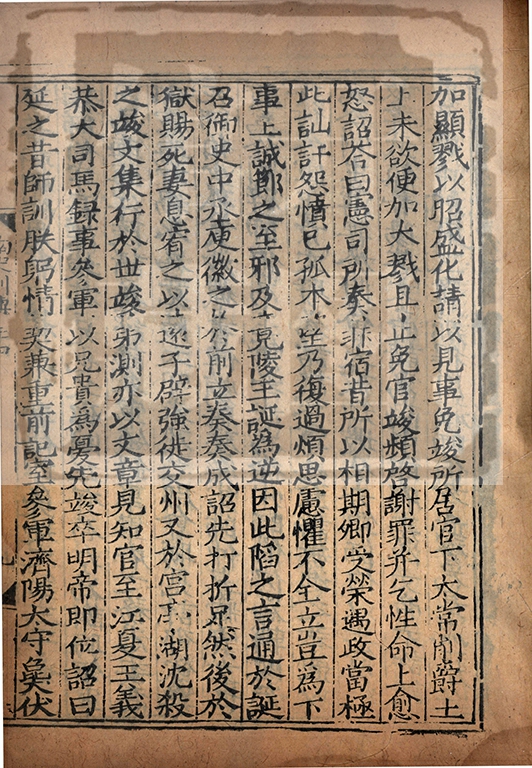 加顯戮以昭盛化請以見事免竣所居官下太常削爵土
上未欲便加大戮且止免官竣頻啓謝罪并乞性命上愈
怒詔荅曰憲司所奏非宿昔所以相期卿受榮遇政當極
此訕訐怨憤已孤本望乃復過煩思慮懼不全立豈爲下
事上誠節之至邪及竟陵王誕為逆因此陷之言通於誕
召御史中丞庾徽之於前立奏奏成詔先打折足然後於
獄賜死妻息宥之以遠子辟強徙交州又於宮亭湖沈殺
之竣文集行於世竣弟測亦以文章見知官至江夏王義
恭大司馬録事叅軍以兄貴爲憂先竣卒明帝即位詔曰
延之昔師訓朕躬情契兼重前記室叅軍濟陽太守㚟伏